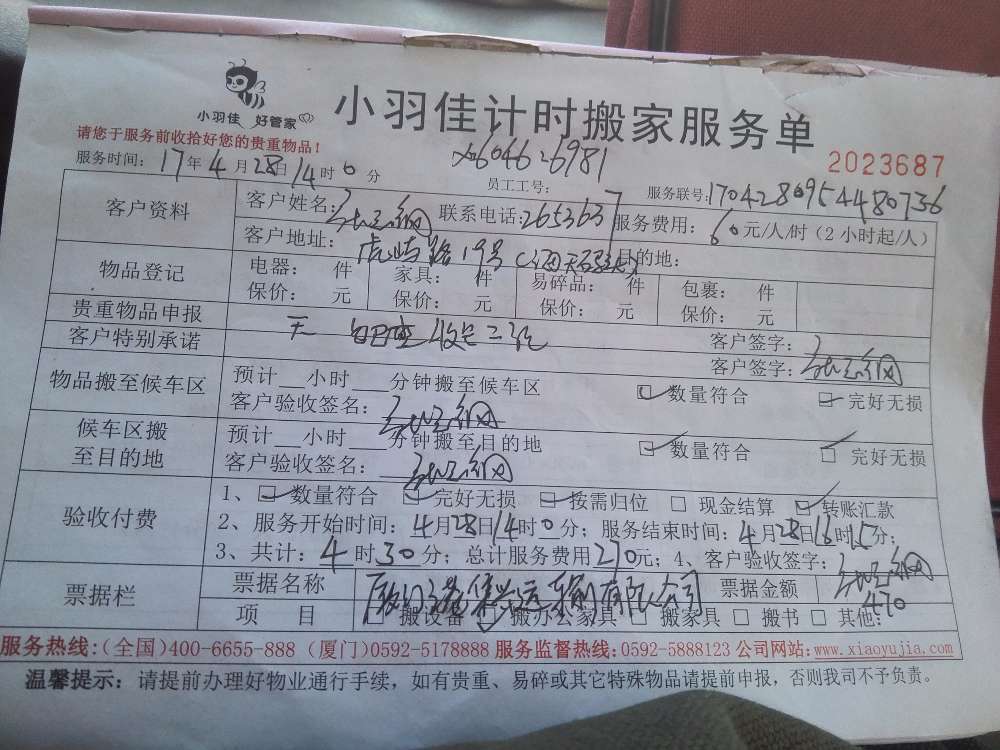 小羽佳 好管家
小羽佳计时搬家服务单
请您于服务前收拾好您的贵重物品！
2023687
服务时间：17年4月28日14时0分
员工工号：
6046 26981
服务联号：1704280954480736
客户资料
客户姓名：
联系电话：2653637
服务费用：60元/人/时（2小时起/人）
客户地址：虎屿路19号
目的地：
物品登记
电器： 件 家具： 件 易碎品： 件 包裹： 件
保价： 元 保价： 元 保价： 元 保价： 元
贵重物品申报
无
客户签字：
客户特别承诺
客户签字：
物品搬至候车区
预计__小时___分钟搬至候车区
数量符合 完好无损
客户验收签名：
候车区搬至目的地
预计__小时___分钟搬至目的地
数量符合 完好无损
客户验收签名：
验收付费
1、数量符合 完好无损 按需归位 现金结算 转账汇款
2、服务开始时间：4月28日14时0分；服务结束时间：4月28日16时15分；
3、共计：4时30分；总计服务费用270元；4、客户验收签字：
票据栏
票据名称 有限公司
票据金额 470
项 目 搬设备 搬办公家具 搬家具 搬书 其他：
服务热线：（全国）400-6655-888 （厦门）0592-5178888 服务监督热线：0592-5888123 公司网站：www.xiaoyujia.com
温馨提示：请提前办理好物业通行手续，如有贵重、易碎或其它特殊物品请提前申报，否则我司不予负责。